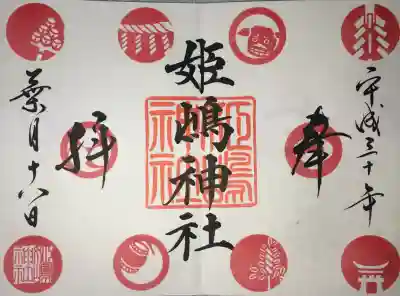 平成三十年
奉
姫嶋神社
拝
葉月十八日